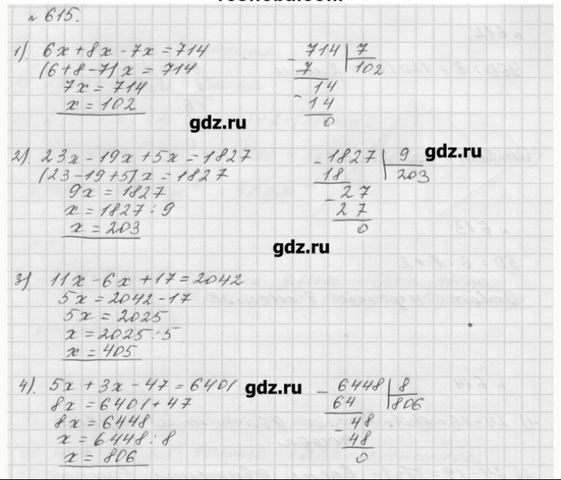 № 615.
1) 6x + 8x - 7x = 714
(6+8-7)x = 714
7x = 714
x = 102
- 714 | 7
7 102
14
- 14
0
gdz.ru
2) 23x - 19x + 5x = 1827
(23-19+5)x = 1827
9x = 1827
x = 1827 : 9
x = 203
- 1827 | 9
18 203
- 27
27
0
gdz.ru
gdz.ru
3) 11x - 6x + 17 = 2042
5x = 2042 - 17
5x = 2025
x = 2025 : 5
x = 405
4). 5x + 3x - 47 = 6401
8x = 6401 + 47
8x = 6448
x = 6448 : 8
x = 806
gdz.ru
- 6448 | 8
64 806
- 48
48
0